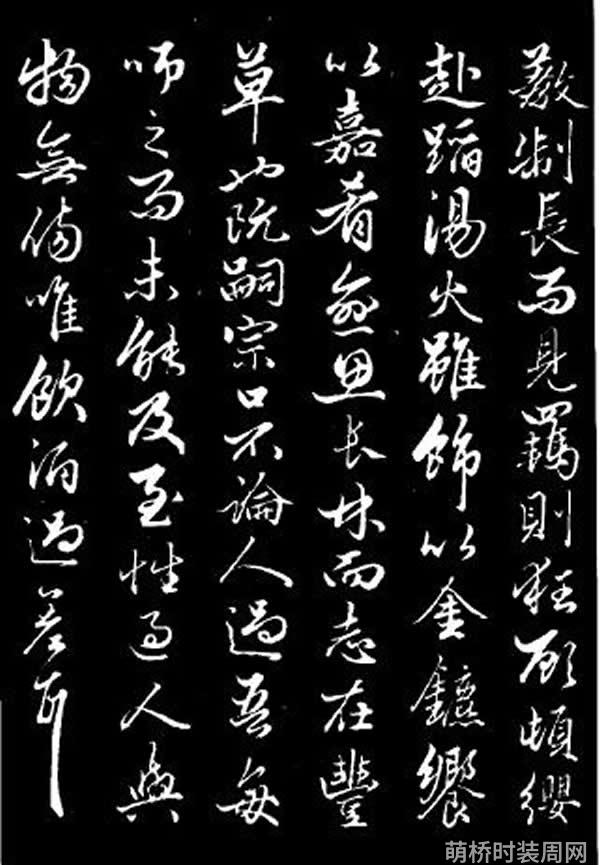 教制長而見羈則狂顧頓纓
赴蹈湯火雖飾以金鑣饗
以嘉肴愈思長林而志在豐
草也阮嗣宗口不論人過吾每
師之而未能及至性過人與
物無傷唯飲酒過差耳
萌桥时装周网